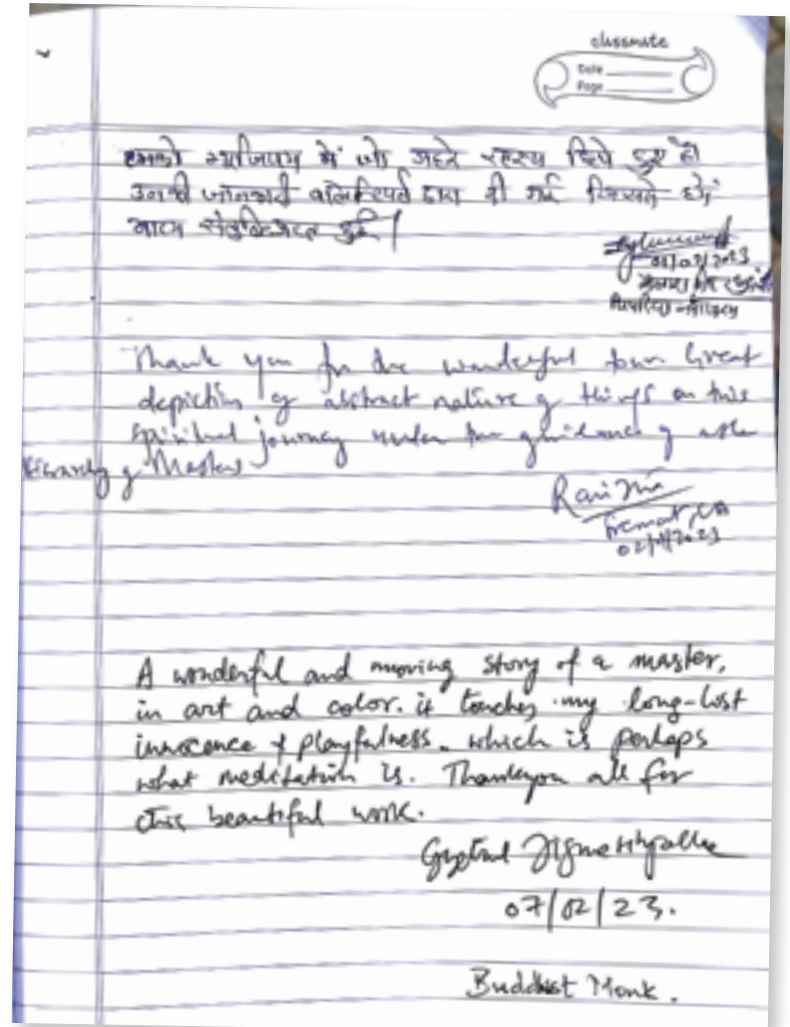 classmate
Date
Page
हमको म्यूजियम में जो गहरे रहस्य छिपे हुए हैं
उनकी जानकारी द्वारा दी गई
Thank you for the wonderful tour Great
depiction of abstract nature of things on this
spiritual journey under the guidance of
Hierarchy of Masters
Ravi
Fremont, CA
A wonderful and moving story of a master,
in art and color. it touches my long-lost
innocence & playfulness. which is perhaps
what meditation is. Thankyou all for
this beautiful work.
07/02/23.
Buddhist Monk.